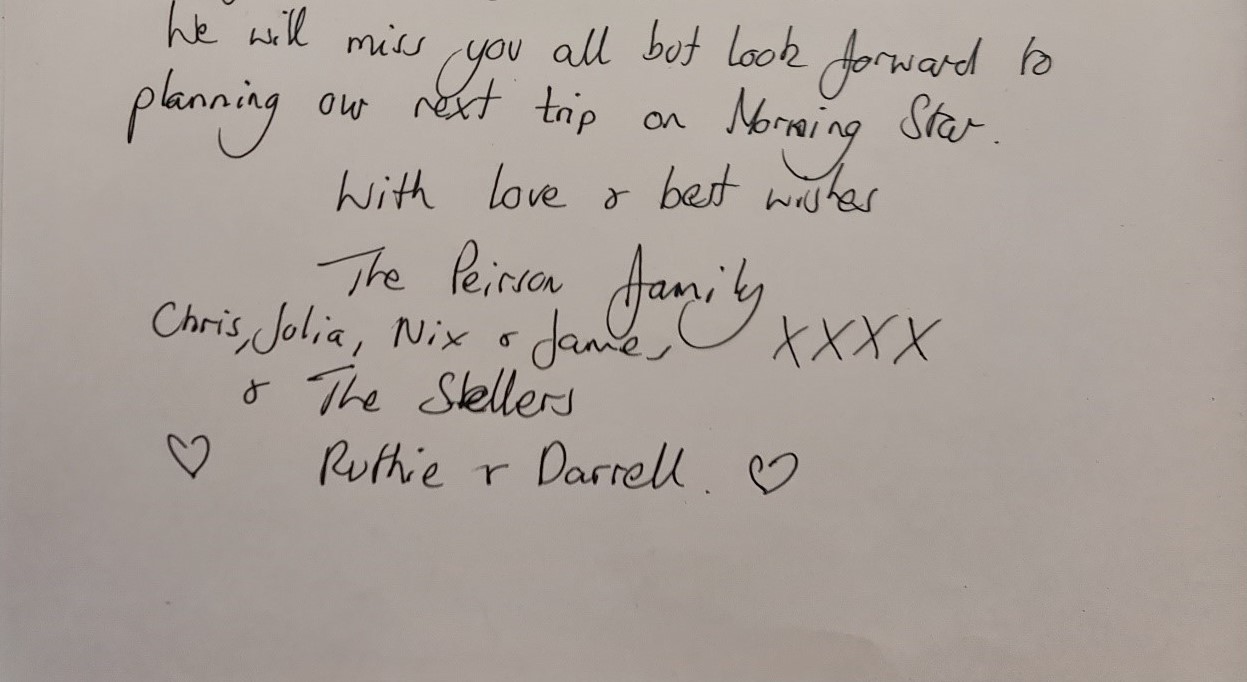 We will miss you all but look forward to
planning our next trip on Morning Star.
With love & best wishes
The Peirson family
Chris, Julia, Nix & James XXXX
& The Stellers
♡ Ruthie & Darrell. ♡